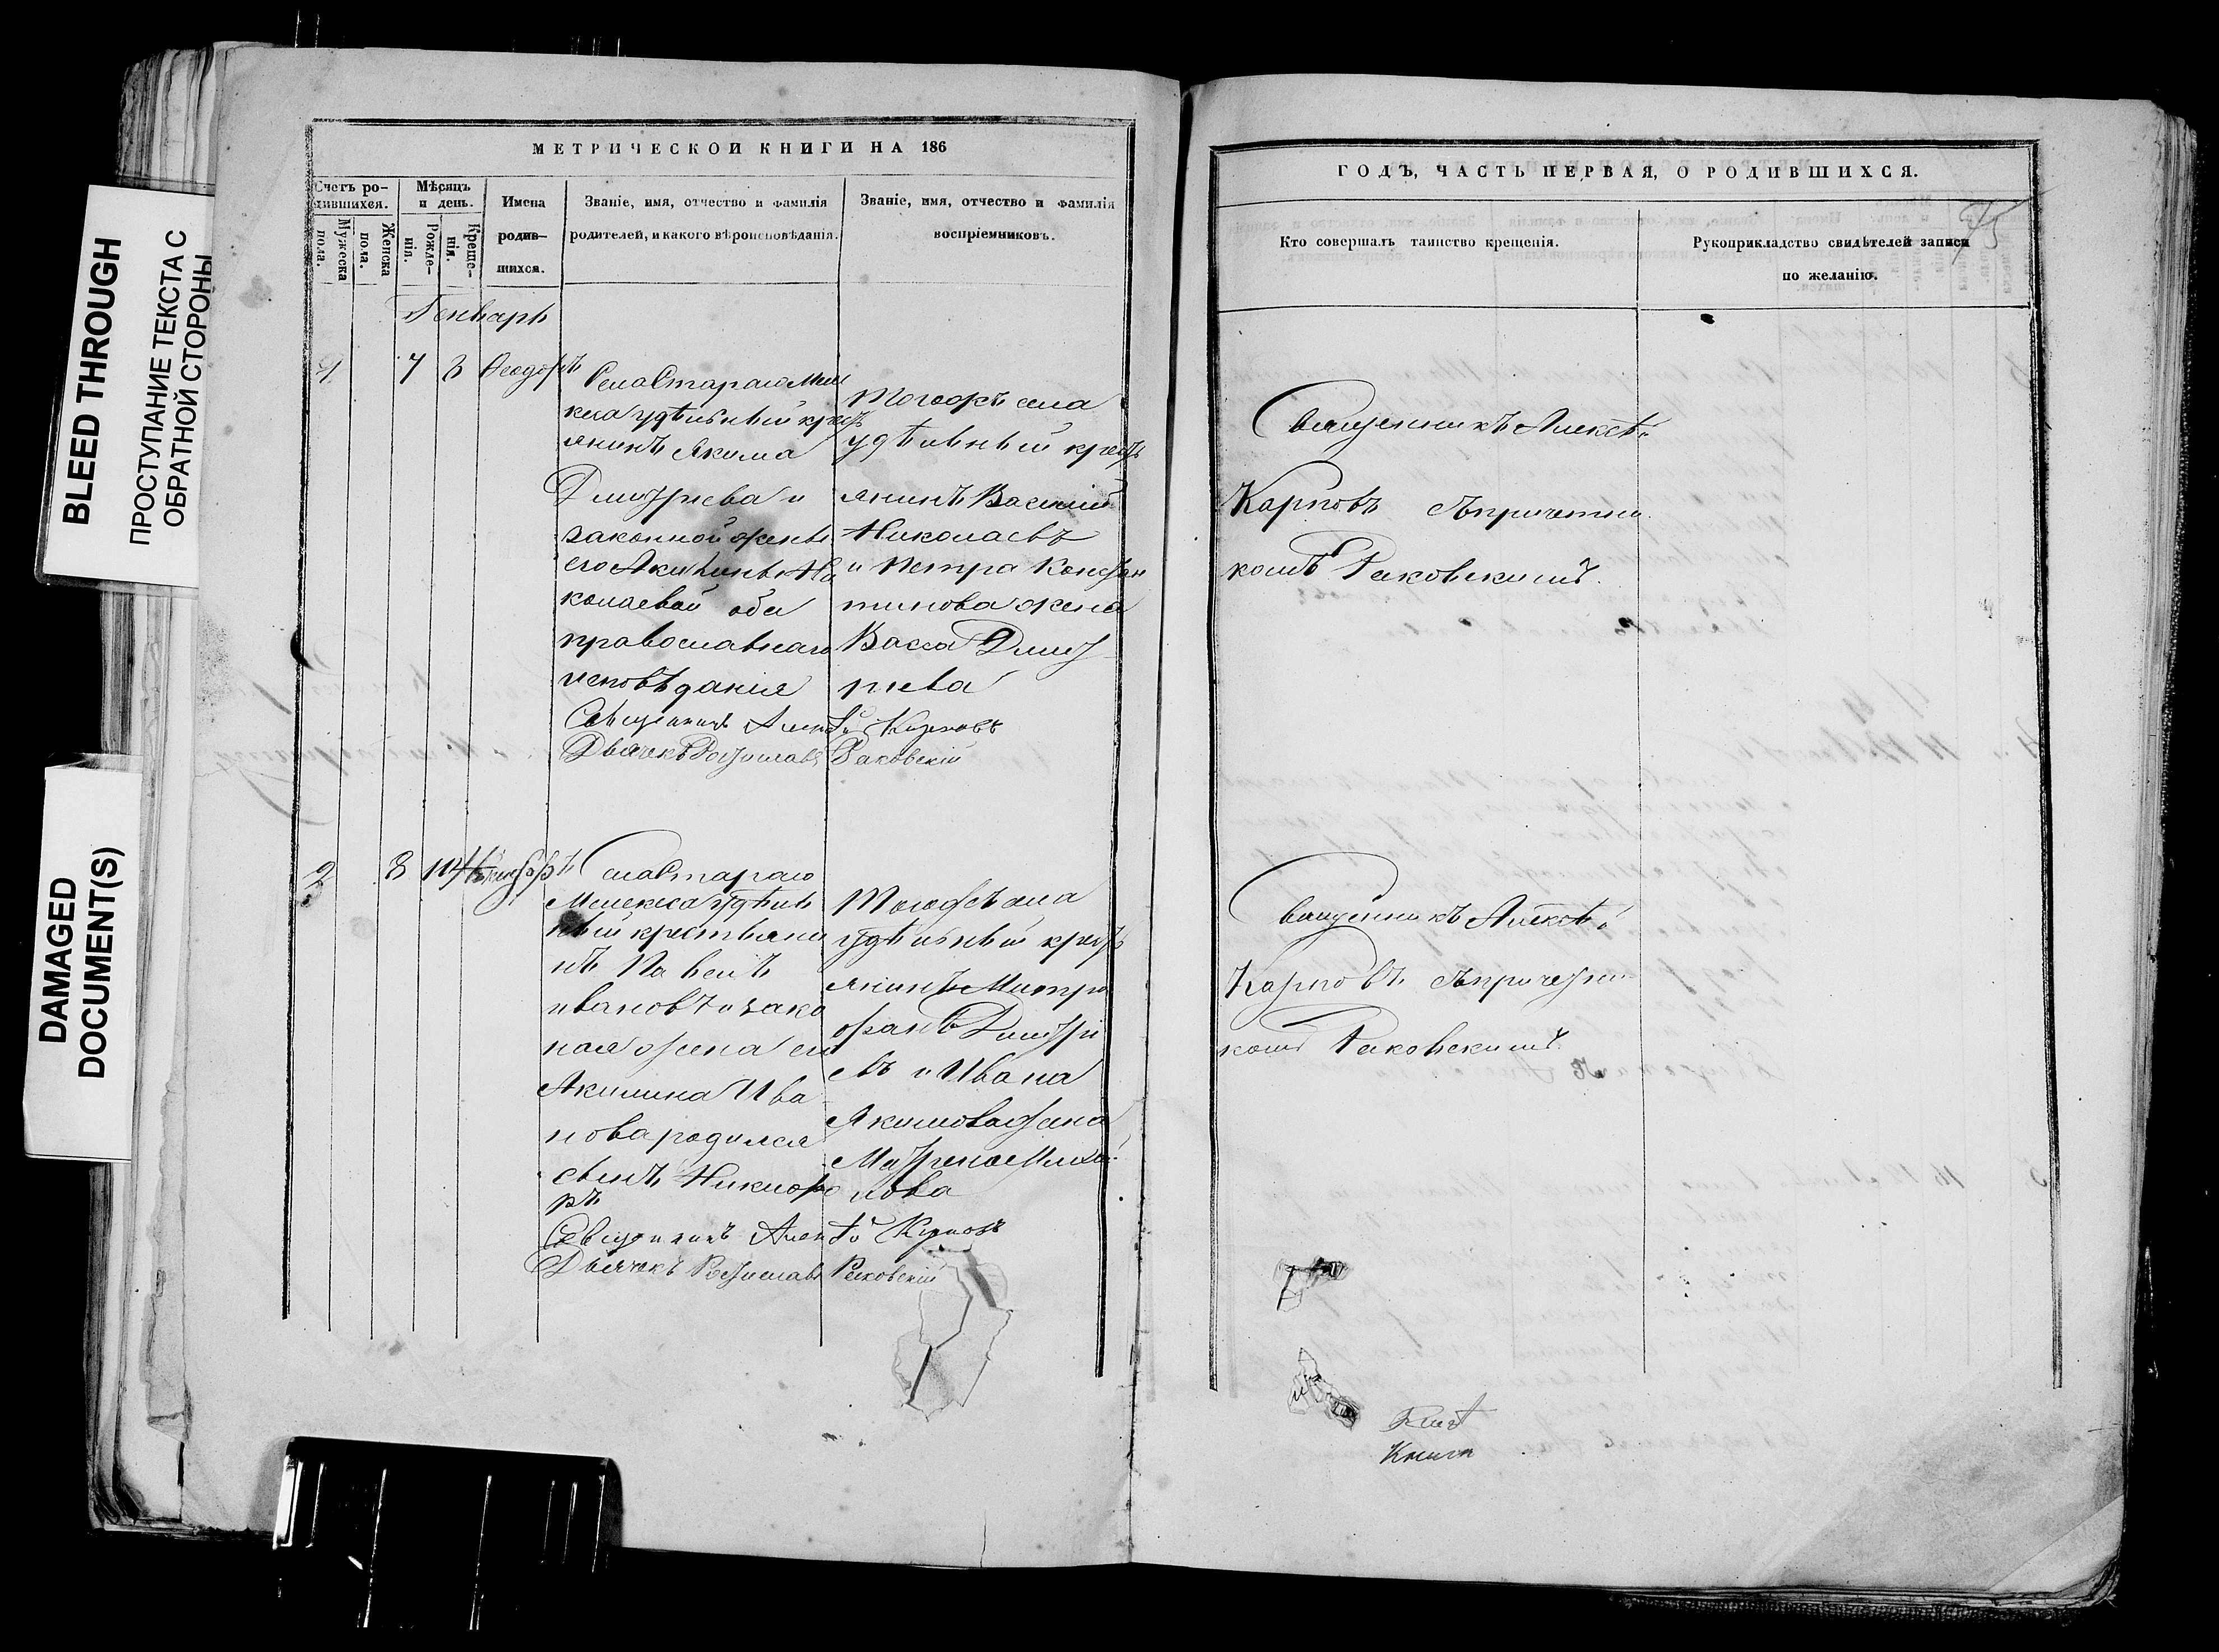 BLEED THROUGH
ПРОСТУПАНИЕ ТЕКСТА С
ОБРАТНОЙ СТОРОНЫ
DAMAGED
DOCUMENT(S)
МЕТРИЧЕСКОЙ КНИГИ НА 186
Счетъ ро-
дившихся.
Мужеска
пола.
Женска
пола.
Мѣсяцъ
и день.
Рожде-
нія.
Креще-
нія.
Имена
родив-
шихся.
Званіе, имя, отчество и фамилія
родителей, и какого вѣроисповѣданія.
Званіе, имя, отчество и фамилія
воспріемниковъ.
Генварь
1 7 8 Ѳеодоръ
Села Стараго Мел
кеса удѣльный крест
янинъ Якима
Дмитріева и
законной жены
его Акилины Ни
колаевой оба
православнаго
исповѣданія
Тогожъ села
удѣльный крестъ
янинъ Василий
Николаевъ
и Петра Констан
тинова жена
Васса Дмит
риева
Священникъ Алексѣй Карповъ
Дьячекъ Ростиславъ Раковскій
2 8 14 Никифоръ
Села Стараго
Мелекеса удѣль
ный крестьяни
нъ Павелъ
Ивановъ и зако
ная жена его
Акилина Ива
нова родился
сынъ Никифо
ръ
Тогожъ села
удѣльный крестъ
янинъ Митро
фанъ Дмитрі
евъ и Ивана
Якимова жена
Матрена Михай
лова
Священникъ Алексѣй Карповъ
Дьячекъ Ростиславъ Раковскій
ГОДЪ, ЧАСТЬ ПЕРВАЯ, О РОДИВШИХСЯ.
Кто совершалъ таинство крещенія.
Рукоприкладство свидѣтелей записи
по желанію.
75
Священникъ Алексѣй
Карповъ съ причетни
комъ Раковскимъ.
Священникъ Алексѣй
Карповъ съ причетни
комъ Раковскимъ.
Книги